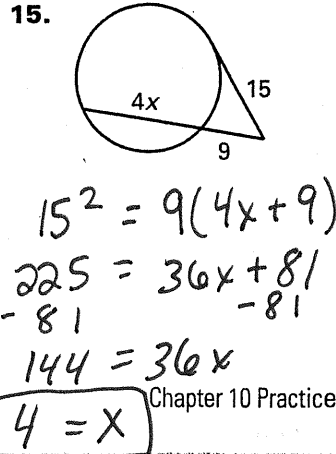 15.
4x
15
9
15² = 9(4x+9)
225 = 36x+81
- 81 -81
144 = 36x
Chapter 10 Practice
4 = x